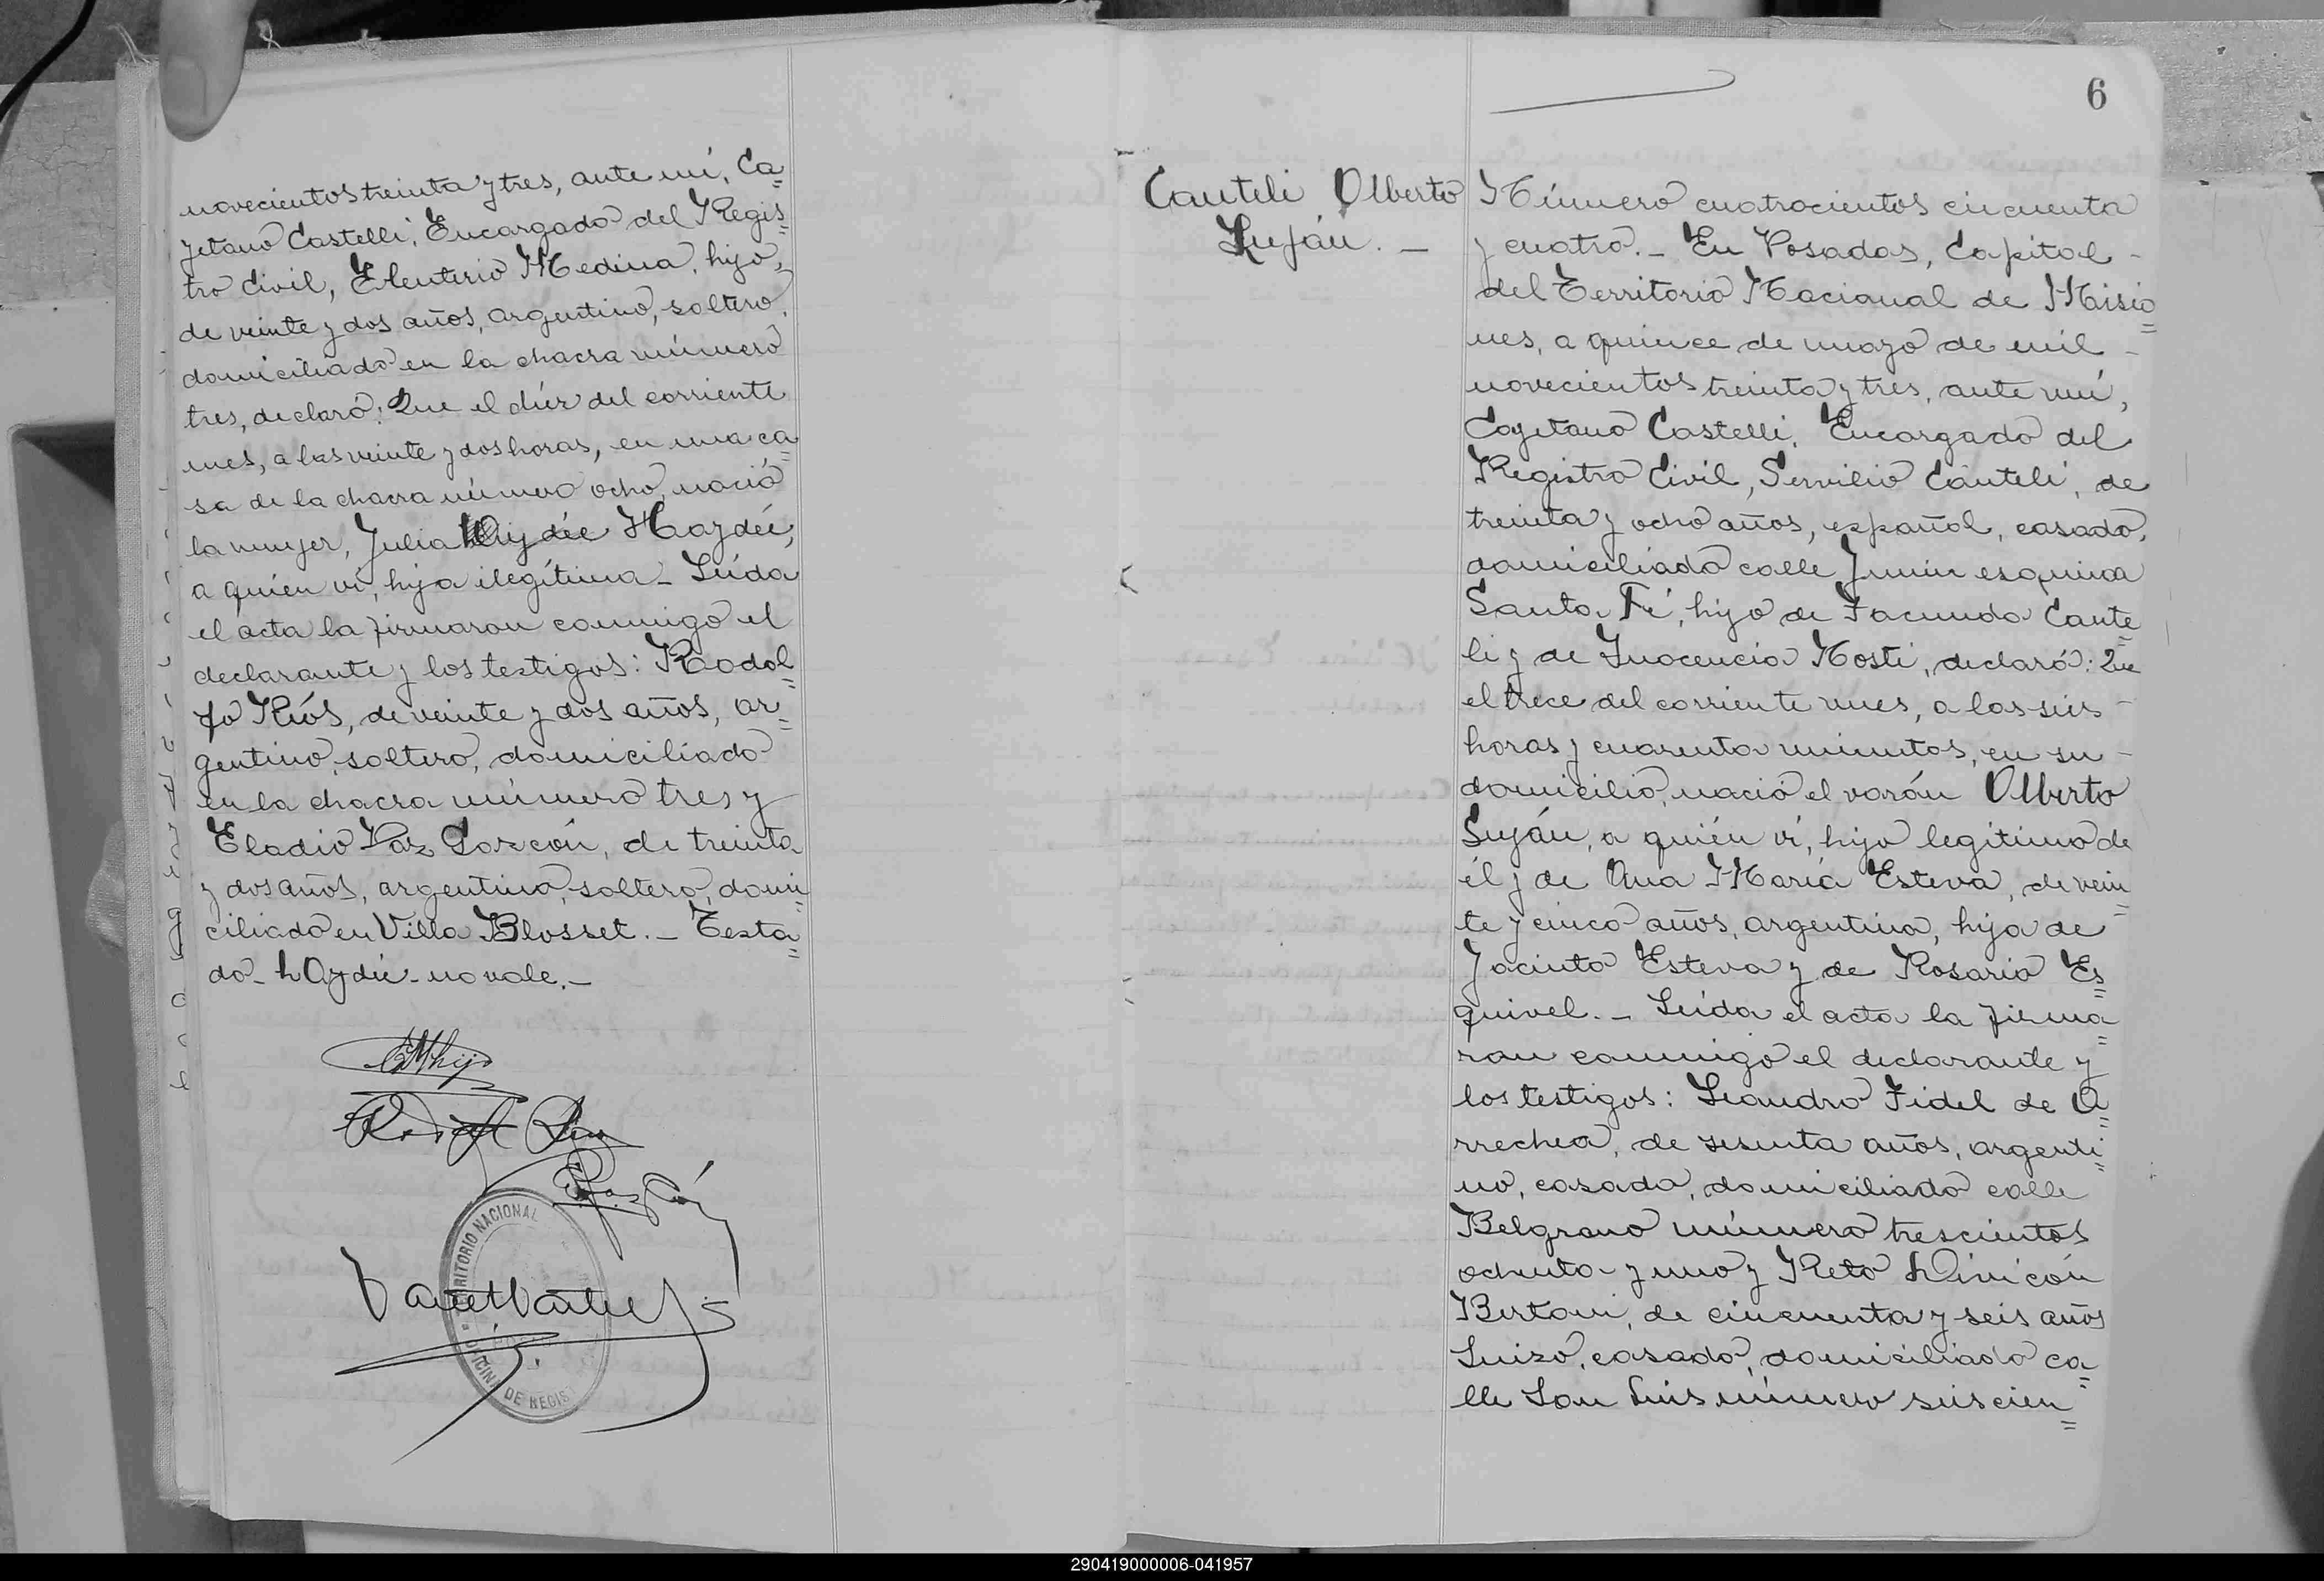 novecientos treinta y tres, ante mí, Ca=
yetano Castelli, Encargado del Regis=
tro Civil, Eleuterio Medina, hijo,
de veinte y dos años, argentino, soltero,
domiciliado en la chacra número
tres, declaró: Que el diéz del corriente
mes, a las veinte y dos horas, en una ca=
sa de la chacra número ocho, nació
la mujer, Julia Haydée,
a quién ví, hija ilegítima_ Leída
el acta la firmaron conmigo el
declarante y los testigos: Rodol=
fo Ríos, de veinte y dos años, ar=
gentino, soltero, domiciliado
en la chacra número tres y
Eladio Paz Garzón, de treinta
y dos años, argentino, soltero, domi=
ciliado en Villa Blosset._ Testa=
do_ hAydée_ no vale._
EMhijo
TERRITORIO NACIONAL
OFICINA DE REGIS
6
Canteli Alberto
Luján._
Número cuatrocientos cincuenta
y cuatro._ En Posadas, Capital -
del Territorio Nacional de Misio=
nes, a quince de mayo de mil -
novecientos treinta y tres, ante mí,
Cayetano Castelli, Encargado del
Registro Civil, Servilio Cánteli, de
treinta y ocho años, español, casado,
domiciliado calle Junín esquina
Santa Fé, hijo de Facundo Cante=
li y de Inocencia Nosti, declaró: Que
el trece del corriente mes, a las seis -
horas y cuarenta minutos, en su -
domicilio, nació el varón Alberto
Luján, a quién ví, hijo legítimo de
él y de Ana María Esteva, de vein=
te y cinco años, argentina, hija de
Jacinto Esteva y de Rosario Es=
quivel._ Leída el acta la firma=
ron conmigo el declarante y
los testigos: Leandro Fidel de A=
rrechea, de sesenta años, argenti=
no, casado, domiciliado calle
Belgrano número trescientos
ochenta y uno y Reto Divicón
Bertoni, de cincuenta y seis años
Suizo, casado, domiciliado ca=
lle San Luis número seiscien=
290419000006-041957